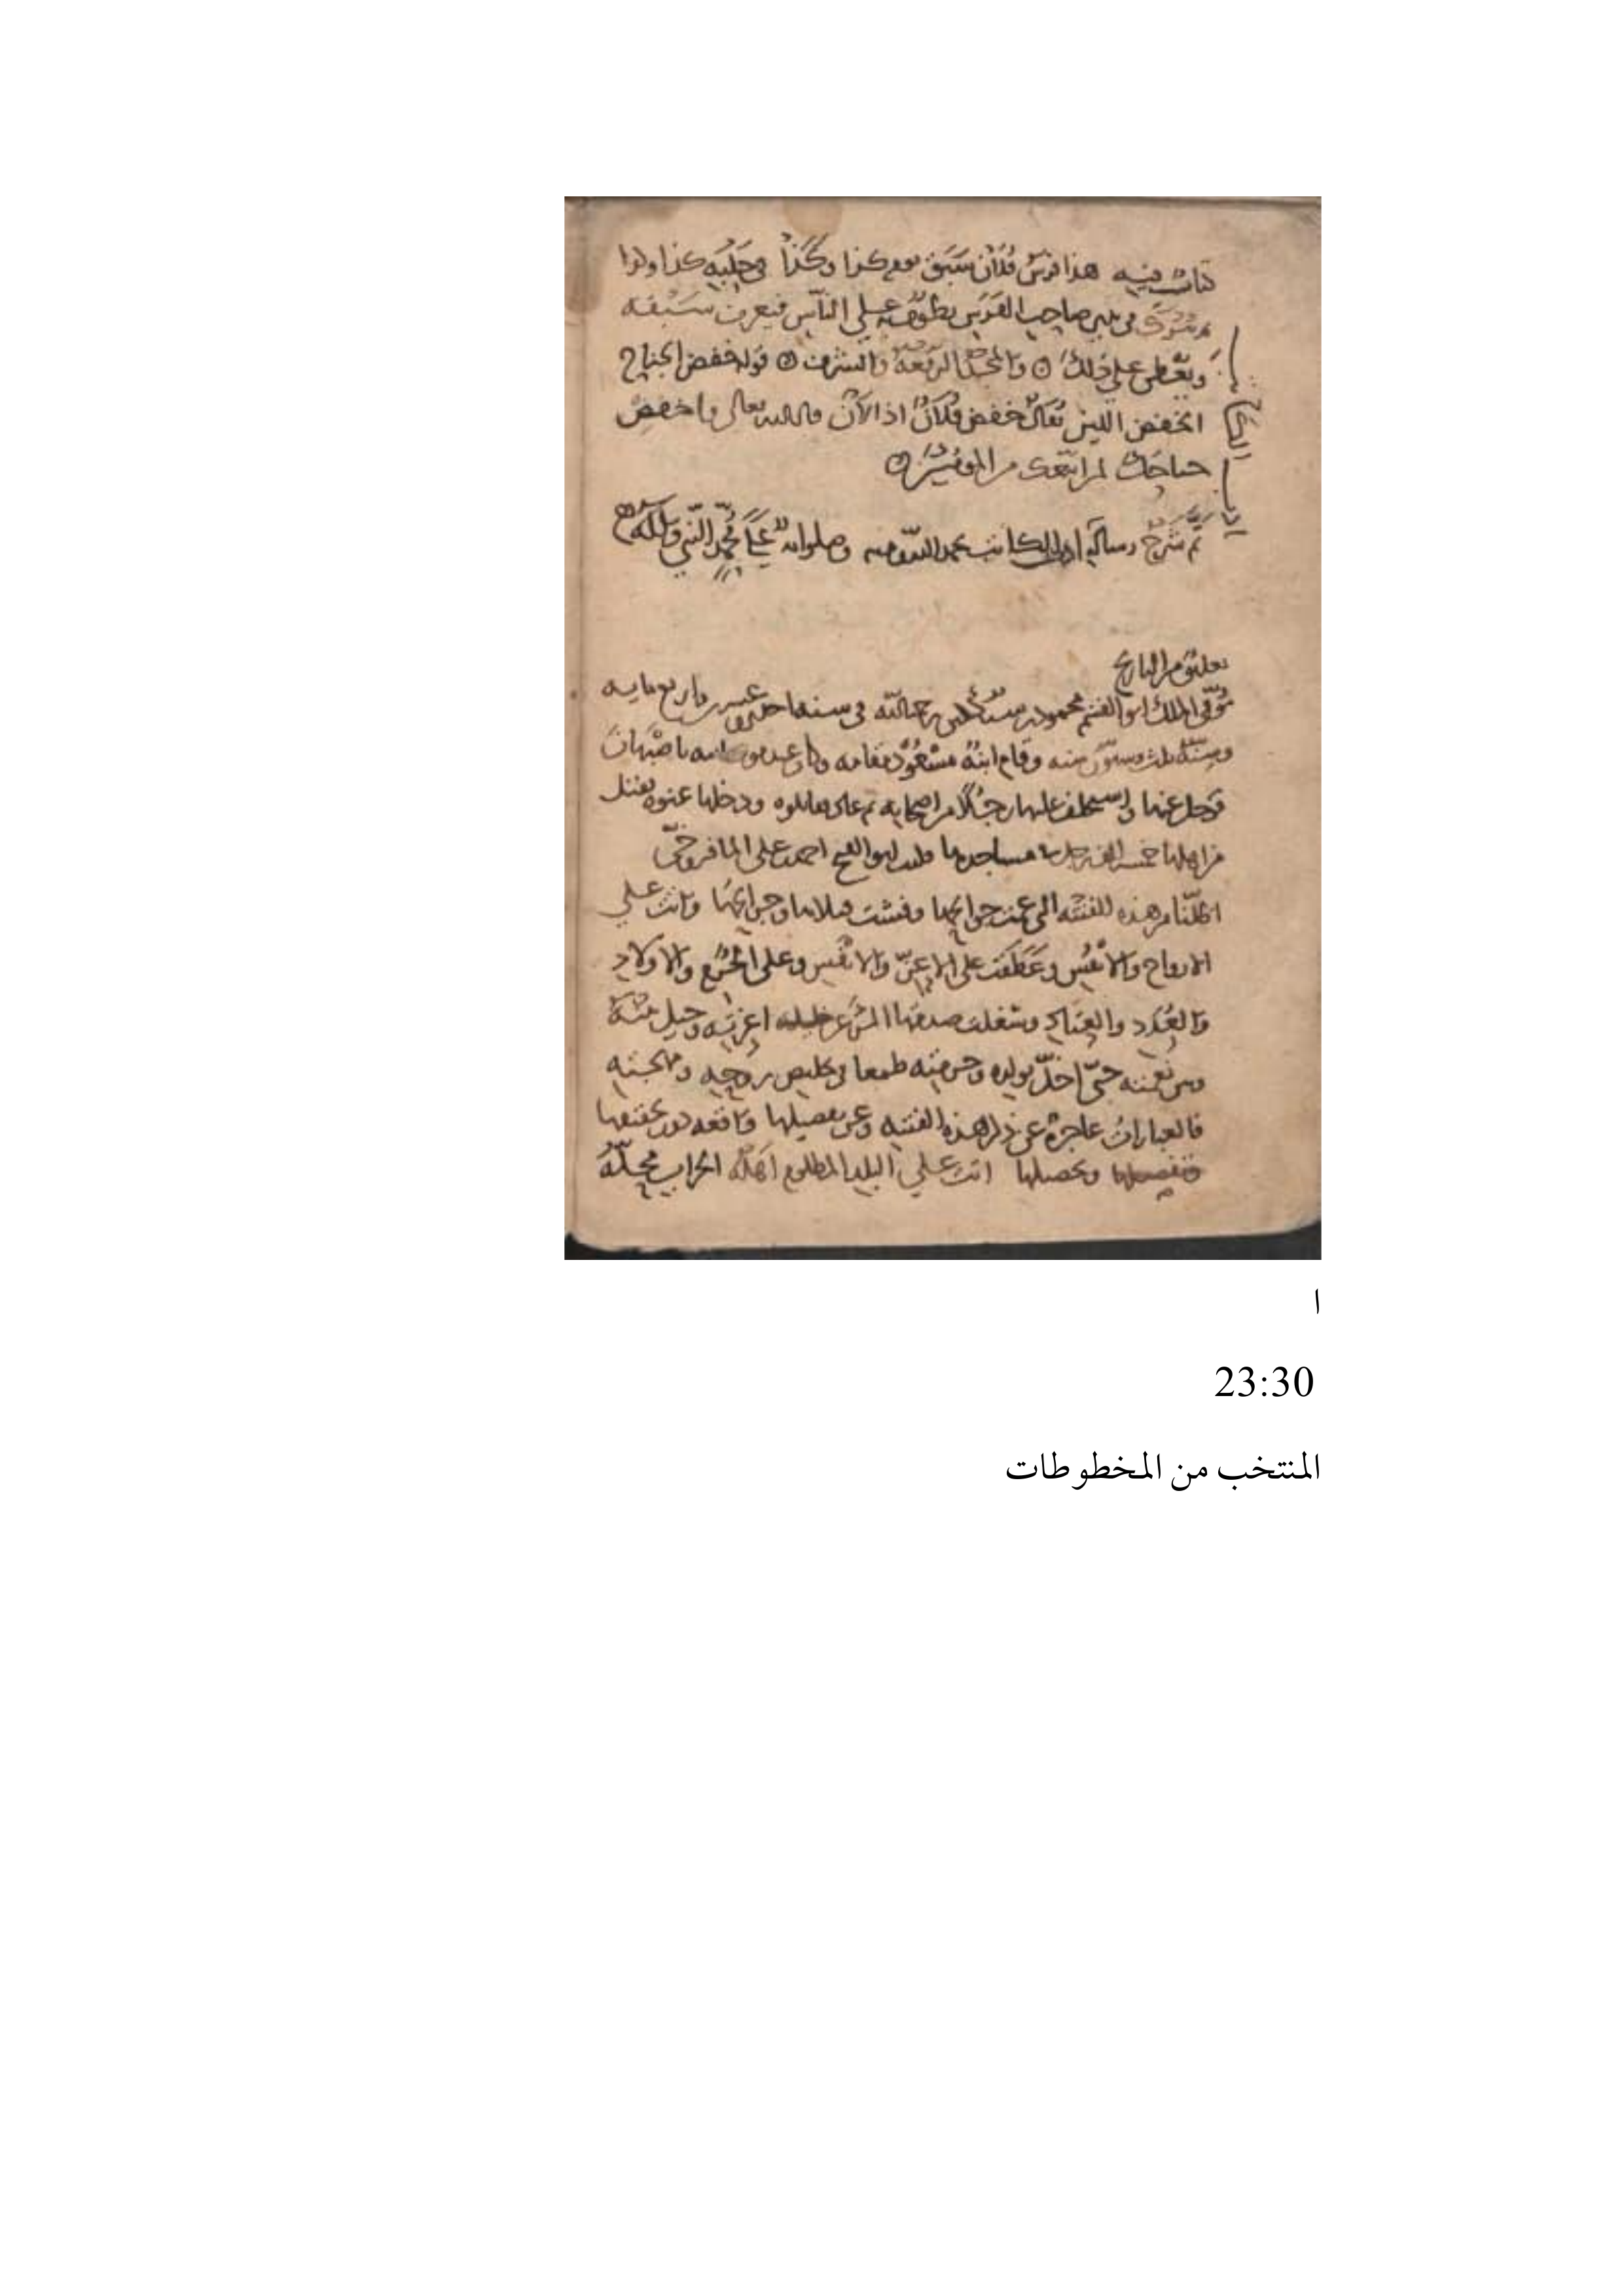 كتاب فيه هذا فرس فلان سبق يوم كذا وكذا في حلبه كذا وكذا
ثم يترك في صاحب الفرس يطوف به على الناس فيعرف سبقه
ويعطى على ذلك والمجد الرفعة والشرف قوله خفض الجناح
الخفض اللين يقال خفض فلان اذا لان قال الله تعالى واخفض
جناحك لمن اتبعك من المومنين
تم شرح رسالة ادب الكاتب بحمد الله ومنه وصلواته على محمد النبي واله
تعليق من التاريخ
توفي الملك ابو القسم محمود بن سبكتكين رحمه الله في سنة احدى وعشرين واربع مايه
وسنه ثلث وستون سنه وقام ابنه مسعود مقامه وكان عند موت ابيه باصبهان
فرحل عنها واستخلف عليها رجلا من اصحابه ثم عاد ودخلها عنوه فقتل
من اهلها خمسة الف رجل مساجدها ابو الفتح احمد بن علي المافروخي
اظلنا من هذه الفتنه التي عمت جوايحها وفشت وجرايحها واتت على
الارواح والانفس وعطفت على الاعز والانفس وعلى الحرم والاولاد
والعدد والعتاد وشغلت صدمتها المرء عن خليله اعزته وحيل بينه
وبين نعمته حتى اخل بولده وحرمته طمعا في تخليص روحه ومهجته
فالعبارات عاجزة عن ذكر هذه الفتنه وعن تفصيلها واقعه دون تحقيقها
وتحصيلها اتت على البلد المطلوم اهله الخراب محله
ا
23:30
المنتخب من المخطوطات